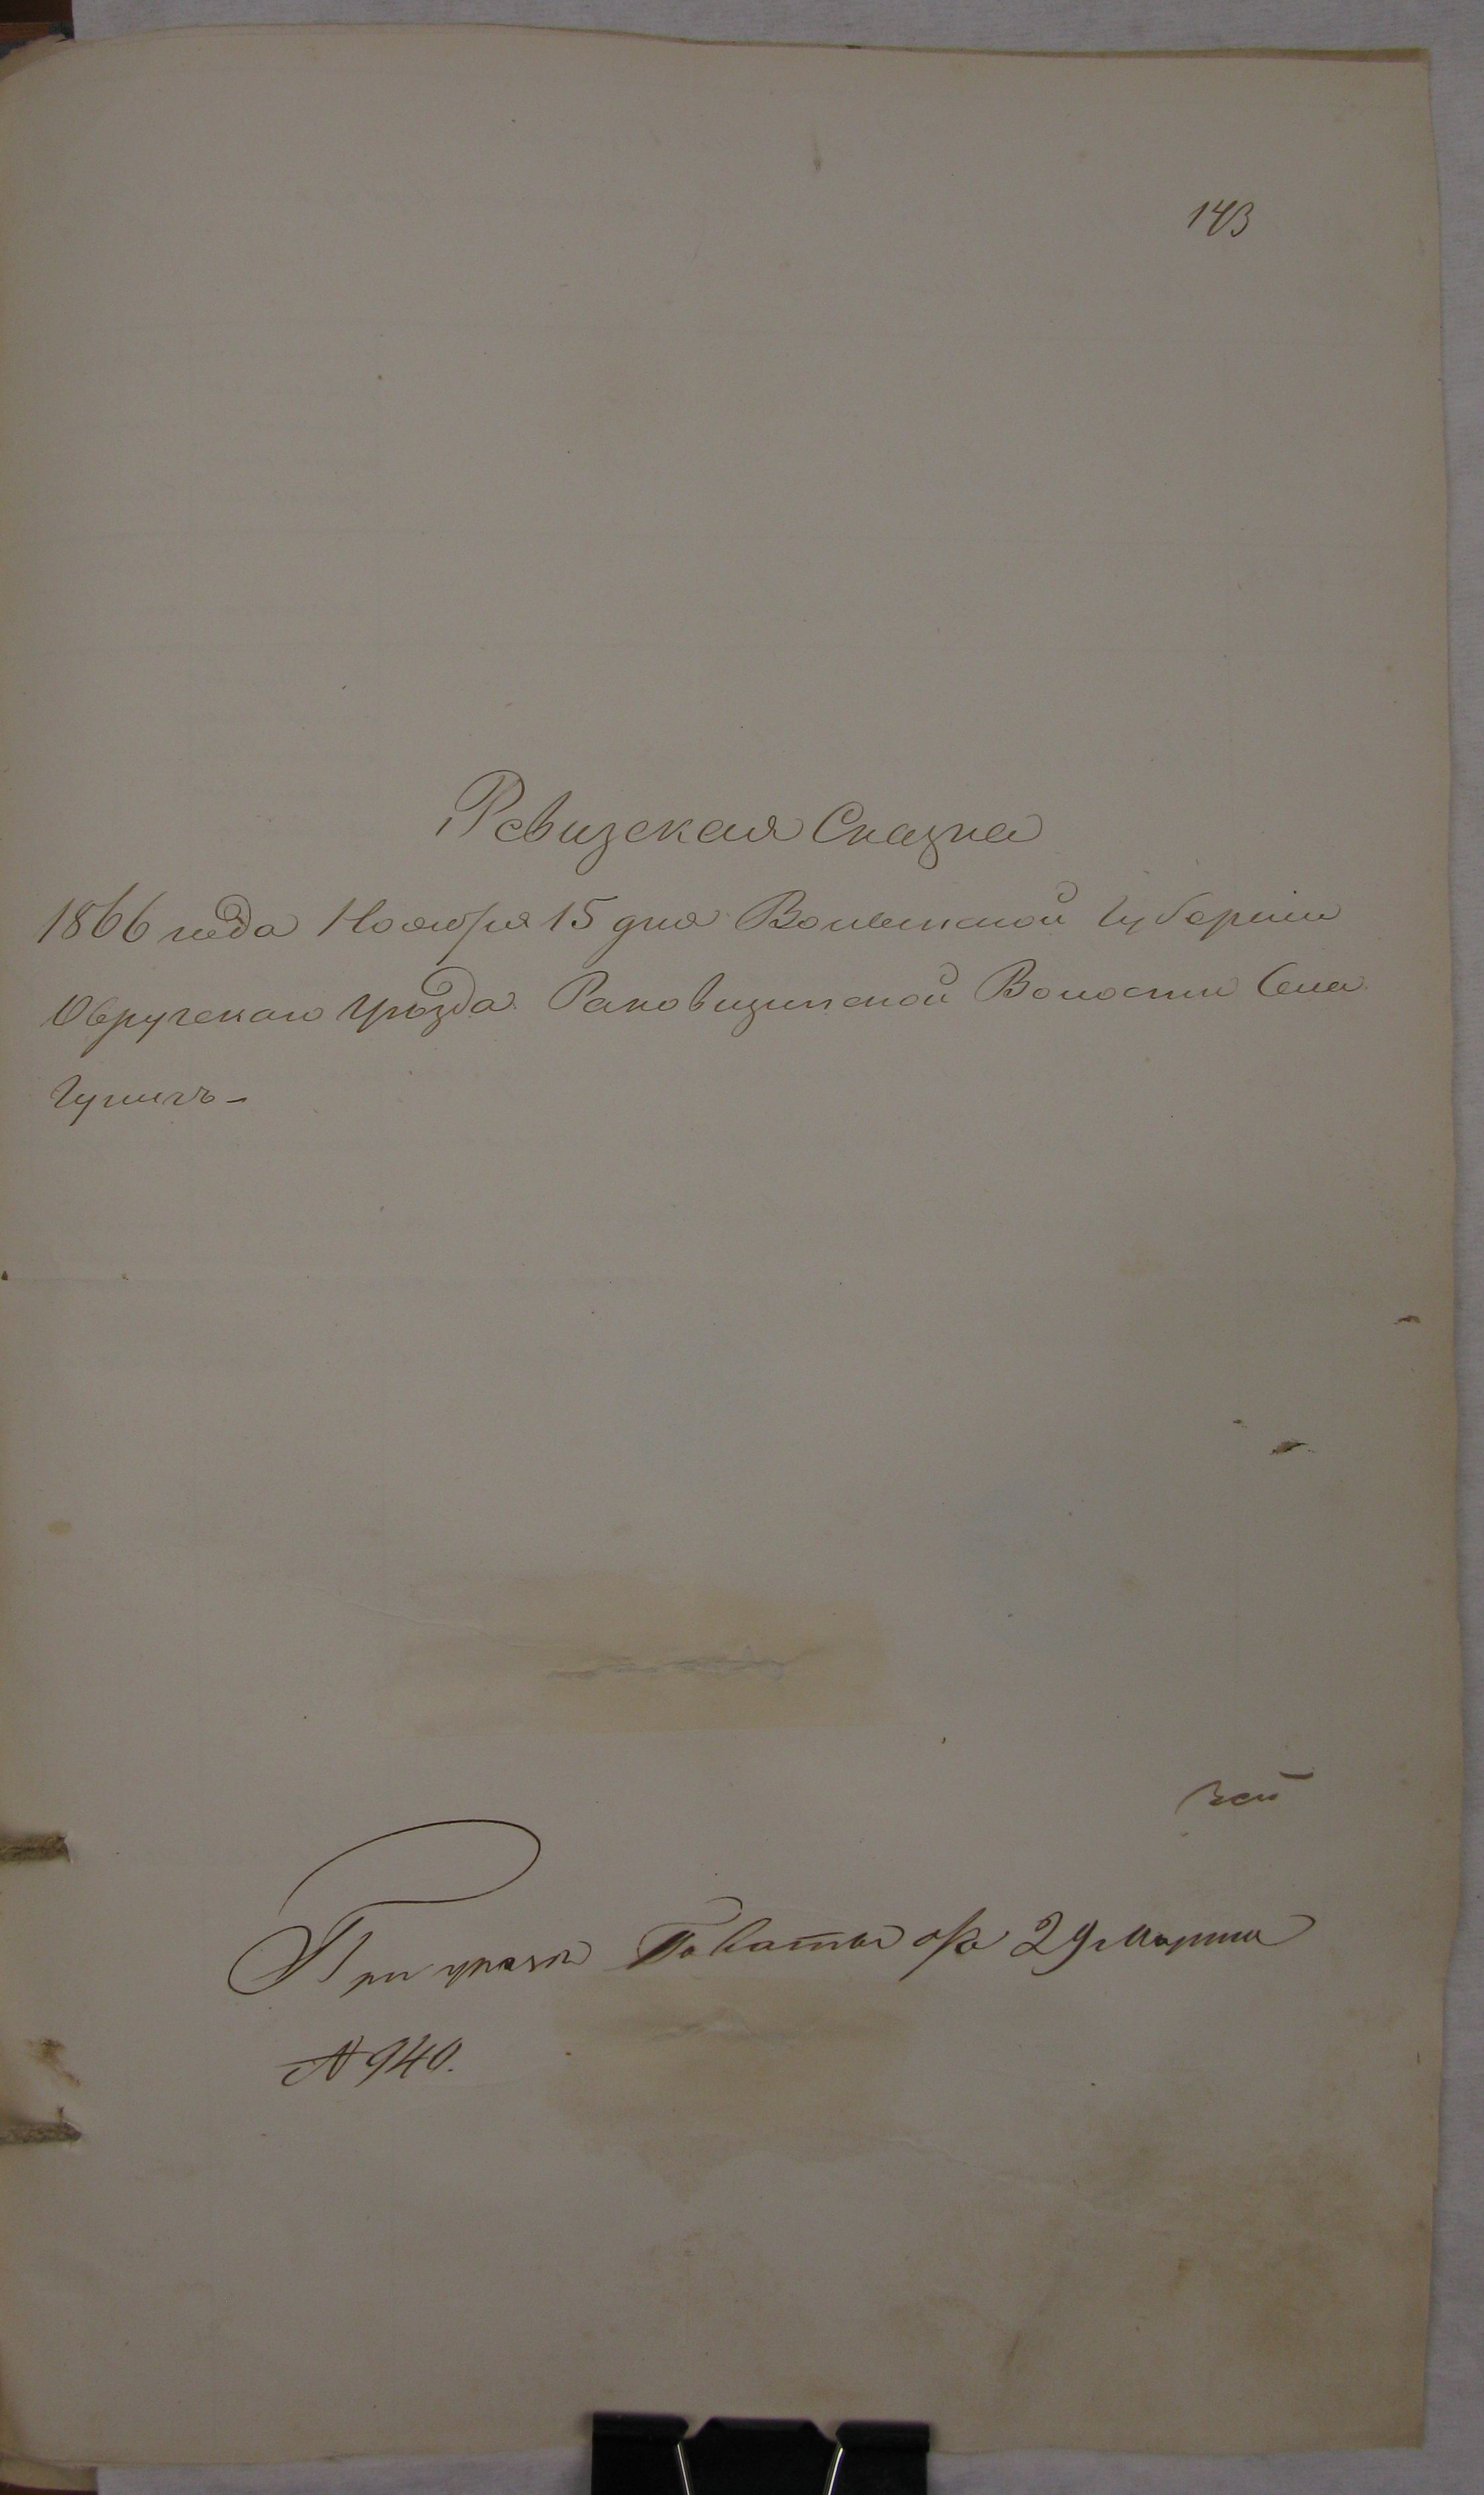 143
Ревизская Сказка
1866 года Ноября 15 дня Волынской Губерніи
Овручскаго Уѣзда Раковщинской Волости Села
Гуничъ-
При указѣ Палаты отъ 29 Марта
№ 940.